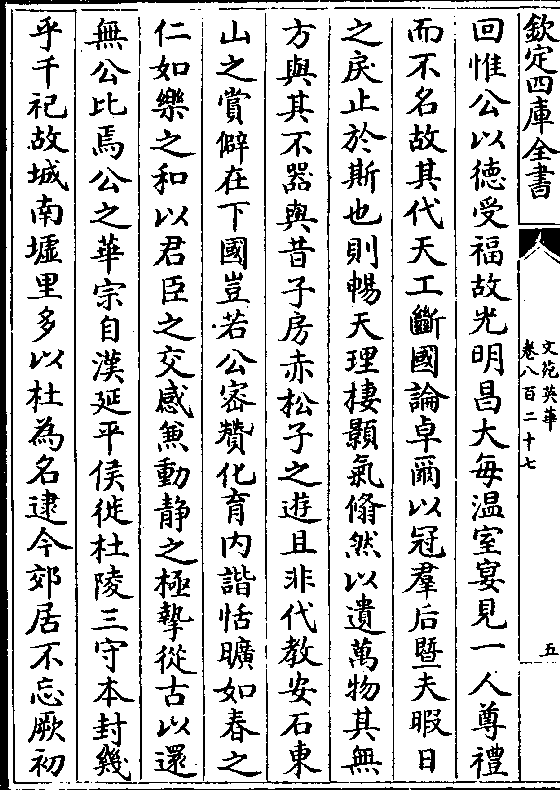 欽定四庫全書
文苑英華
卷八百二十七
五
回惟公以德受福故光明昌大每温室宴見一人尊禮
而不名故其代天工斷國論卓爾以冠羣后暨夫暇日
之戾止於斯也則暢天理棲顥氣翛然以遺萬物其無
方與其不器與昔子房赤松子之遊且非代教安石東
山之賞僻在下國豈若公密贊化育内諧恬曠如春之
仁如樂之和以君臣之交感兼動静之極摯從古以還
無公比焉公之華宗自漢延平侯徙杜陵三守本封幾
乎千祀故城南墟里多以杜為名逮今郊居不忘厥初